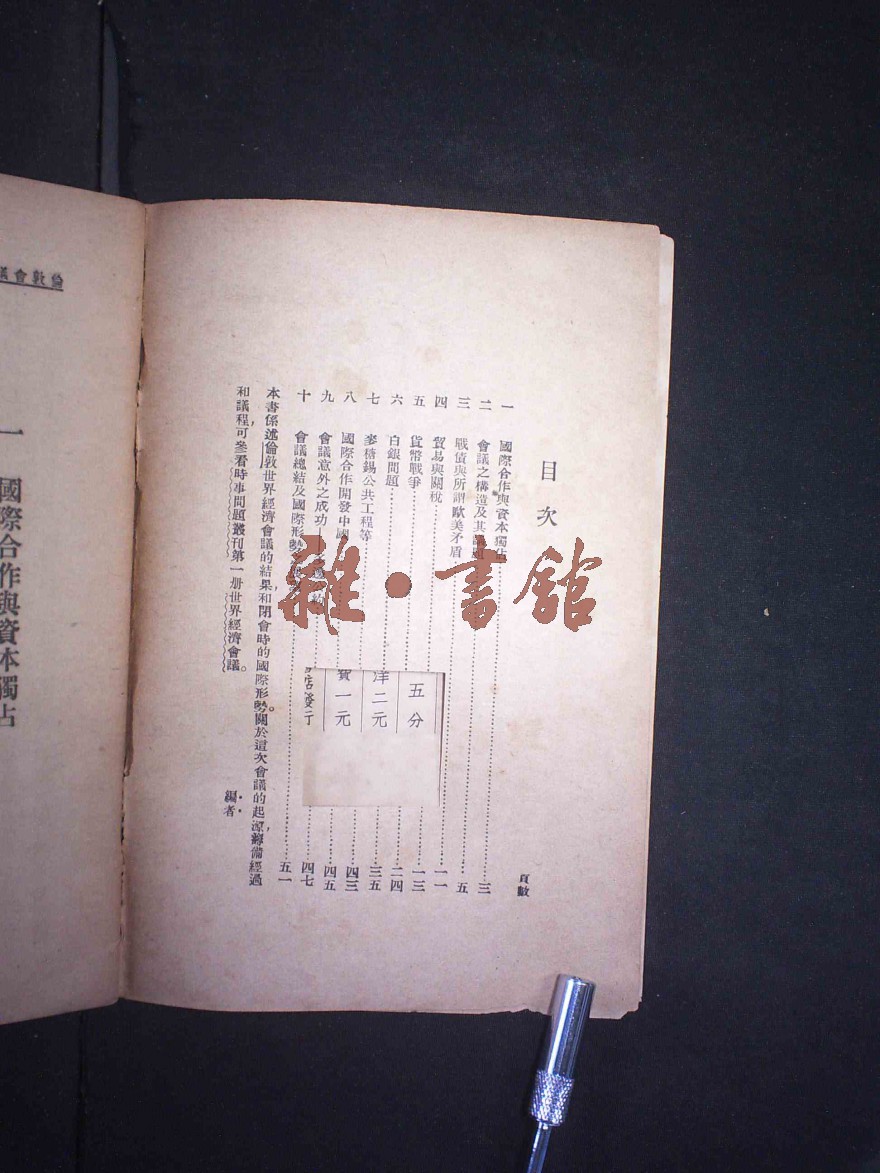 目次
頁數
一 國際合作與資本獨占
二 會議之構造及其 三
三 戰債與所謂歐美矛盾 五
四 貿易與關稅 一一
五 貨幣戰爭 一三
六 白銀問題 二四
七 麥糖錫公共工程等 三五
八 國際合作開發中國 四三
九 會議意外之成功 四五
十 會議總結及國際形勢 四七
五一
本書係述倫敦世界經濟會議的結果和閉會時的國際形勢。關於這次會議的起源,籌備經過
和議程,可參看時事問題叢刊第一册世界經濟會議。
編者
五分
洋二元
一元
發行
雜·書館
倫敦會
一 國際合作與資本獨占